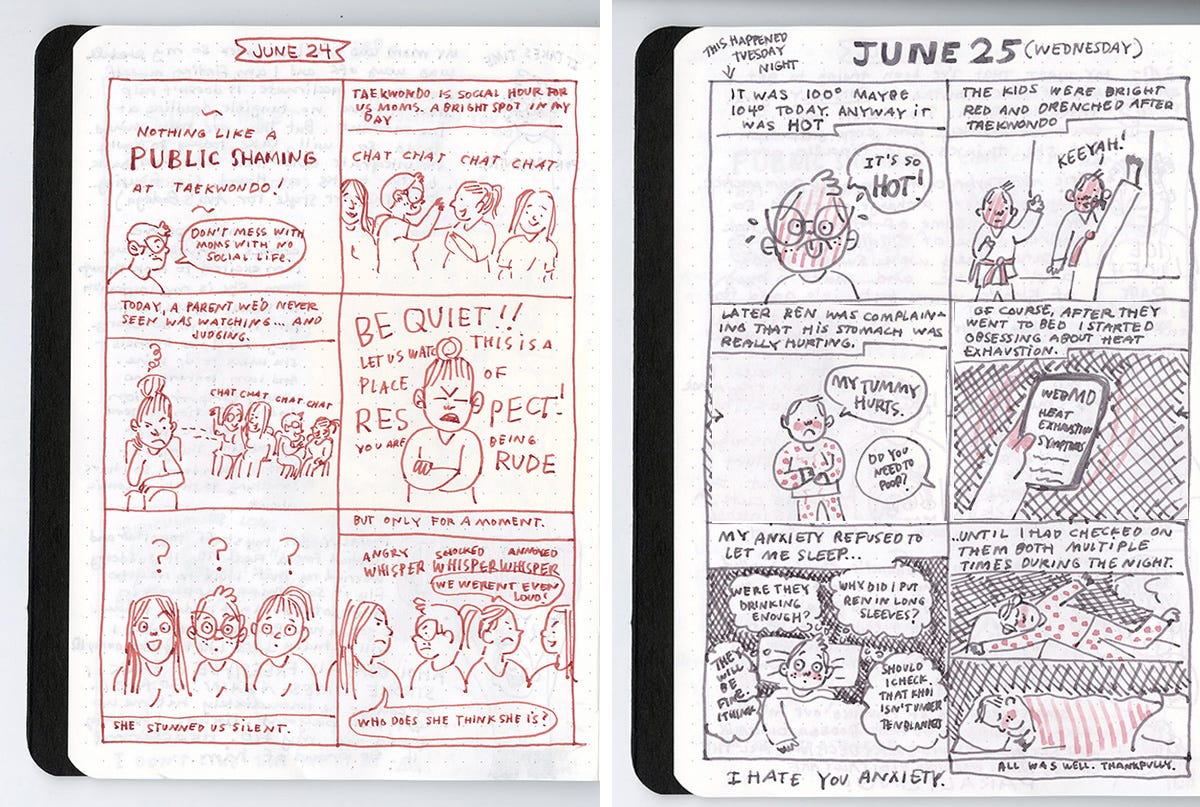 JUNE 24
NOTHING LIKE A
PUBLIC SHAMING
AT TAEKWONDO!
DON'T MESS WITH
MOMS WITH NO
SOCIAL LIFE.
TAEKWONDO IS SOCIAL HOUR FOR
US MOMS. A BRIGHT SPOT IN MY
DAY
CHAT CHAT CHAT CHAT
TODAY, A PARENT WE'D NEVER
SEEN WAS WATCHING... AND
JUDGING.
CHAT CHAT CHAT CHAT
BE QUIET!!
LET US WATCH THIS IS A
PLACE OF
RESPECT!
YOU ARE BEING
RUDE
? ? ?
SHE STUNNED US SILENT.
BUT ONLY FOR A MOMENT.
ANGRY SHOCKED ANNOYED
WHISPER WHISPER WHISPER
WE WERENT EVEN
LOUD!
WHO DOES SHE THINK SHE IS?
THIS HAPPENED
TUESDAY
NIGHT
JUNE 25 (WEDNESDAY)
IT WAS 100° MAYBE
104° TODAY. ANYWAY IT
WAS HOT
IT'S SO
HOT!
THE KIDS WERE BRIGHT
RED AND DRENCHED AFTER
TAEKWONDO
KEEYAH!
LATER REN WAS COMPLAIN-
ING THAT HIS STOMACH WAS
REALLY HURTING.
MY TUMMY
HURTS.
DO YOU
NEED TO
POOP?
OF COURSE, AFTER THEY
WENT TO BED I STARTED
OBSESSING ABOUT HEAT
EXHAUSTION.
WEBMD
HEAT
EXHAUSTION
SYMPTOMS
MY ANXIETY REFUSED TO
LET ME SLEEP...
WERE THEY
DRINKING
ENOUGH?
WHY DID I PUT
REN IN LONG
SLEEVES?
THEY
WILL
BE
FINE.
I THINK
SHOULD
I CHECK
THAT KHOI
ISN'T UNDER
TEN BLANKETS
...UNTIL I HAD CHECKED ON
THEM BOTH MULTIPLE
TIMES DURING THE NIGHT.
ALL WAS WELL. THANKFULLY.
I HATE YOU ANXIETY.